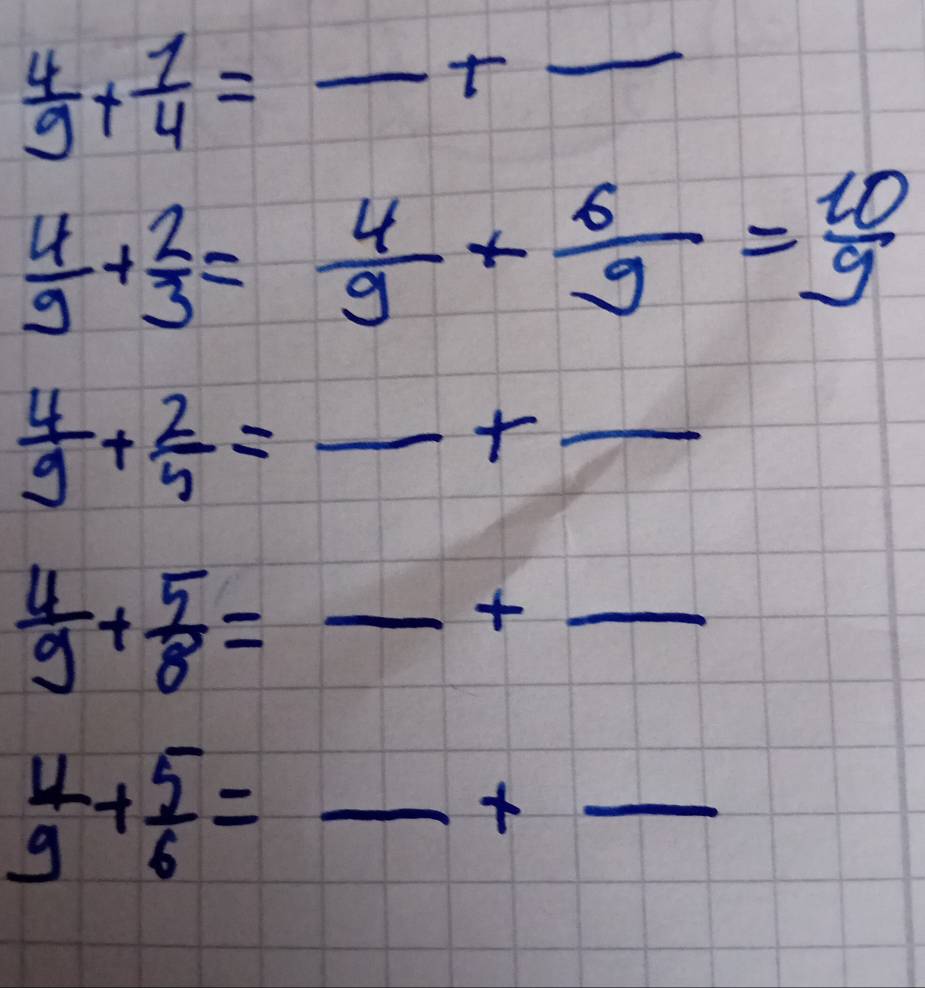 4/9 + 1/4 = — + —
4/9 + 2/3 = 4/9 + 6/9 = 10/9
4/9 + 2/5 = — + —
4/9 + 5/8 = — + —
4/9 + 5/6 = — + —